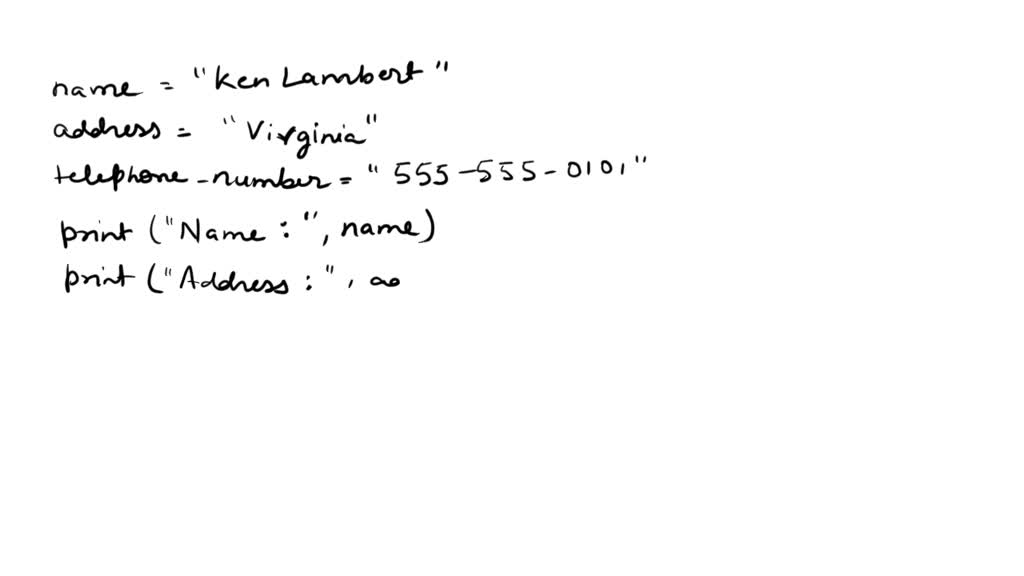 name = "Ken Lambert"
address = "Virginia"
telephone_number = "555-555-0101"
print ("Name :", name)
print ("Address :",